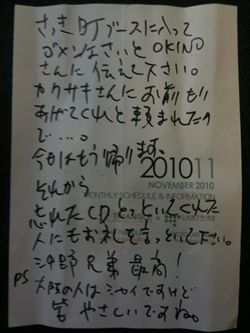 さっきDJブースに入って
ゴメンなさいとOKINO
さんに伝えて下さい。
カワサキさんにお前もり
あげてくれと頼まれたの
で...。
今日はもう帰ります。
2010 11
NOVEMBER 2010
MONTHLY SCHEDULE & INFORMATION
それから
忘れたCDとっといてくれた
TRIANGLE
人にもお礼を言っといて下さい。
沖野兄弟最高!
PS 大阪の人はシャイですけど
皆やさしいですね。